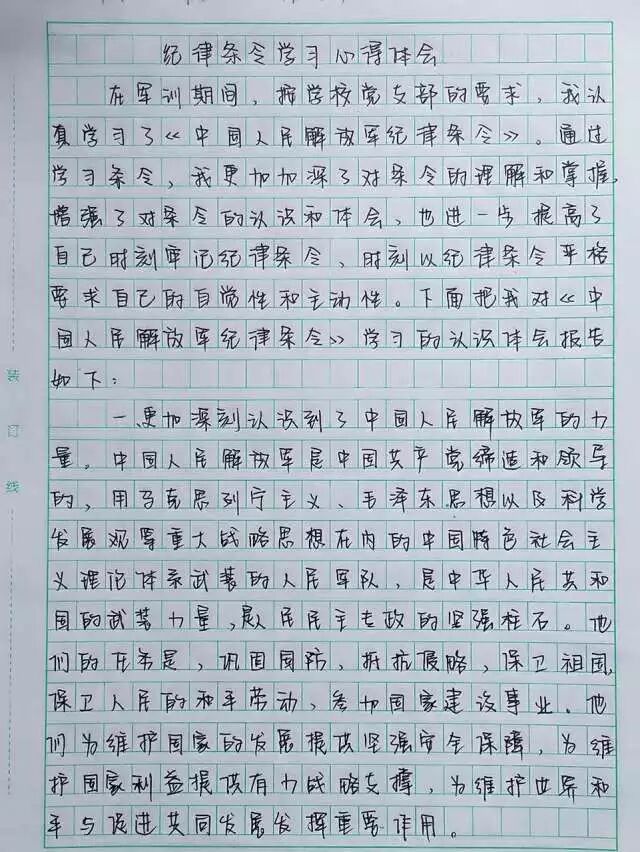 纪律条令学习心得体会
在军训期间，按学校党支部的要求，我认
真学习了《中国人民解放军纪律条令》。通过
学习条令，我更加加深了对条令的理解和掌握，
增强了对条令的认识和体会，也进一步提高了
自己时刻牢记纪律条令、时刻以纪律条令严格
要求自己的自觉性和主动性。下面把我对《中
国人民解放军纪律条令》学习的认识体会报告
如下：
一更加深刻认识到了中国人民解放军的力
量。中国人民解放军是中国共产党缔造和领导
的，用马克思列宁主义、毛泽东思想以及科学
发展观等重大战略思想在内的中国特色社会主
义理论体系武装的人民军队，是中华人民共和
国的武装力量，是人民民主专政的坚强柱石。他
们的任务是，巩固国防，抵抗侵略，保卫祖国，
保卫人民的和平劳动，参加国家建设事业。他
们为维护国家的发展提供坚强安全保障，为维
护国家利益提供有力战略支撑，为维护世界和
平与促进共同发展发挥重要作用。
装
订
线